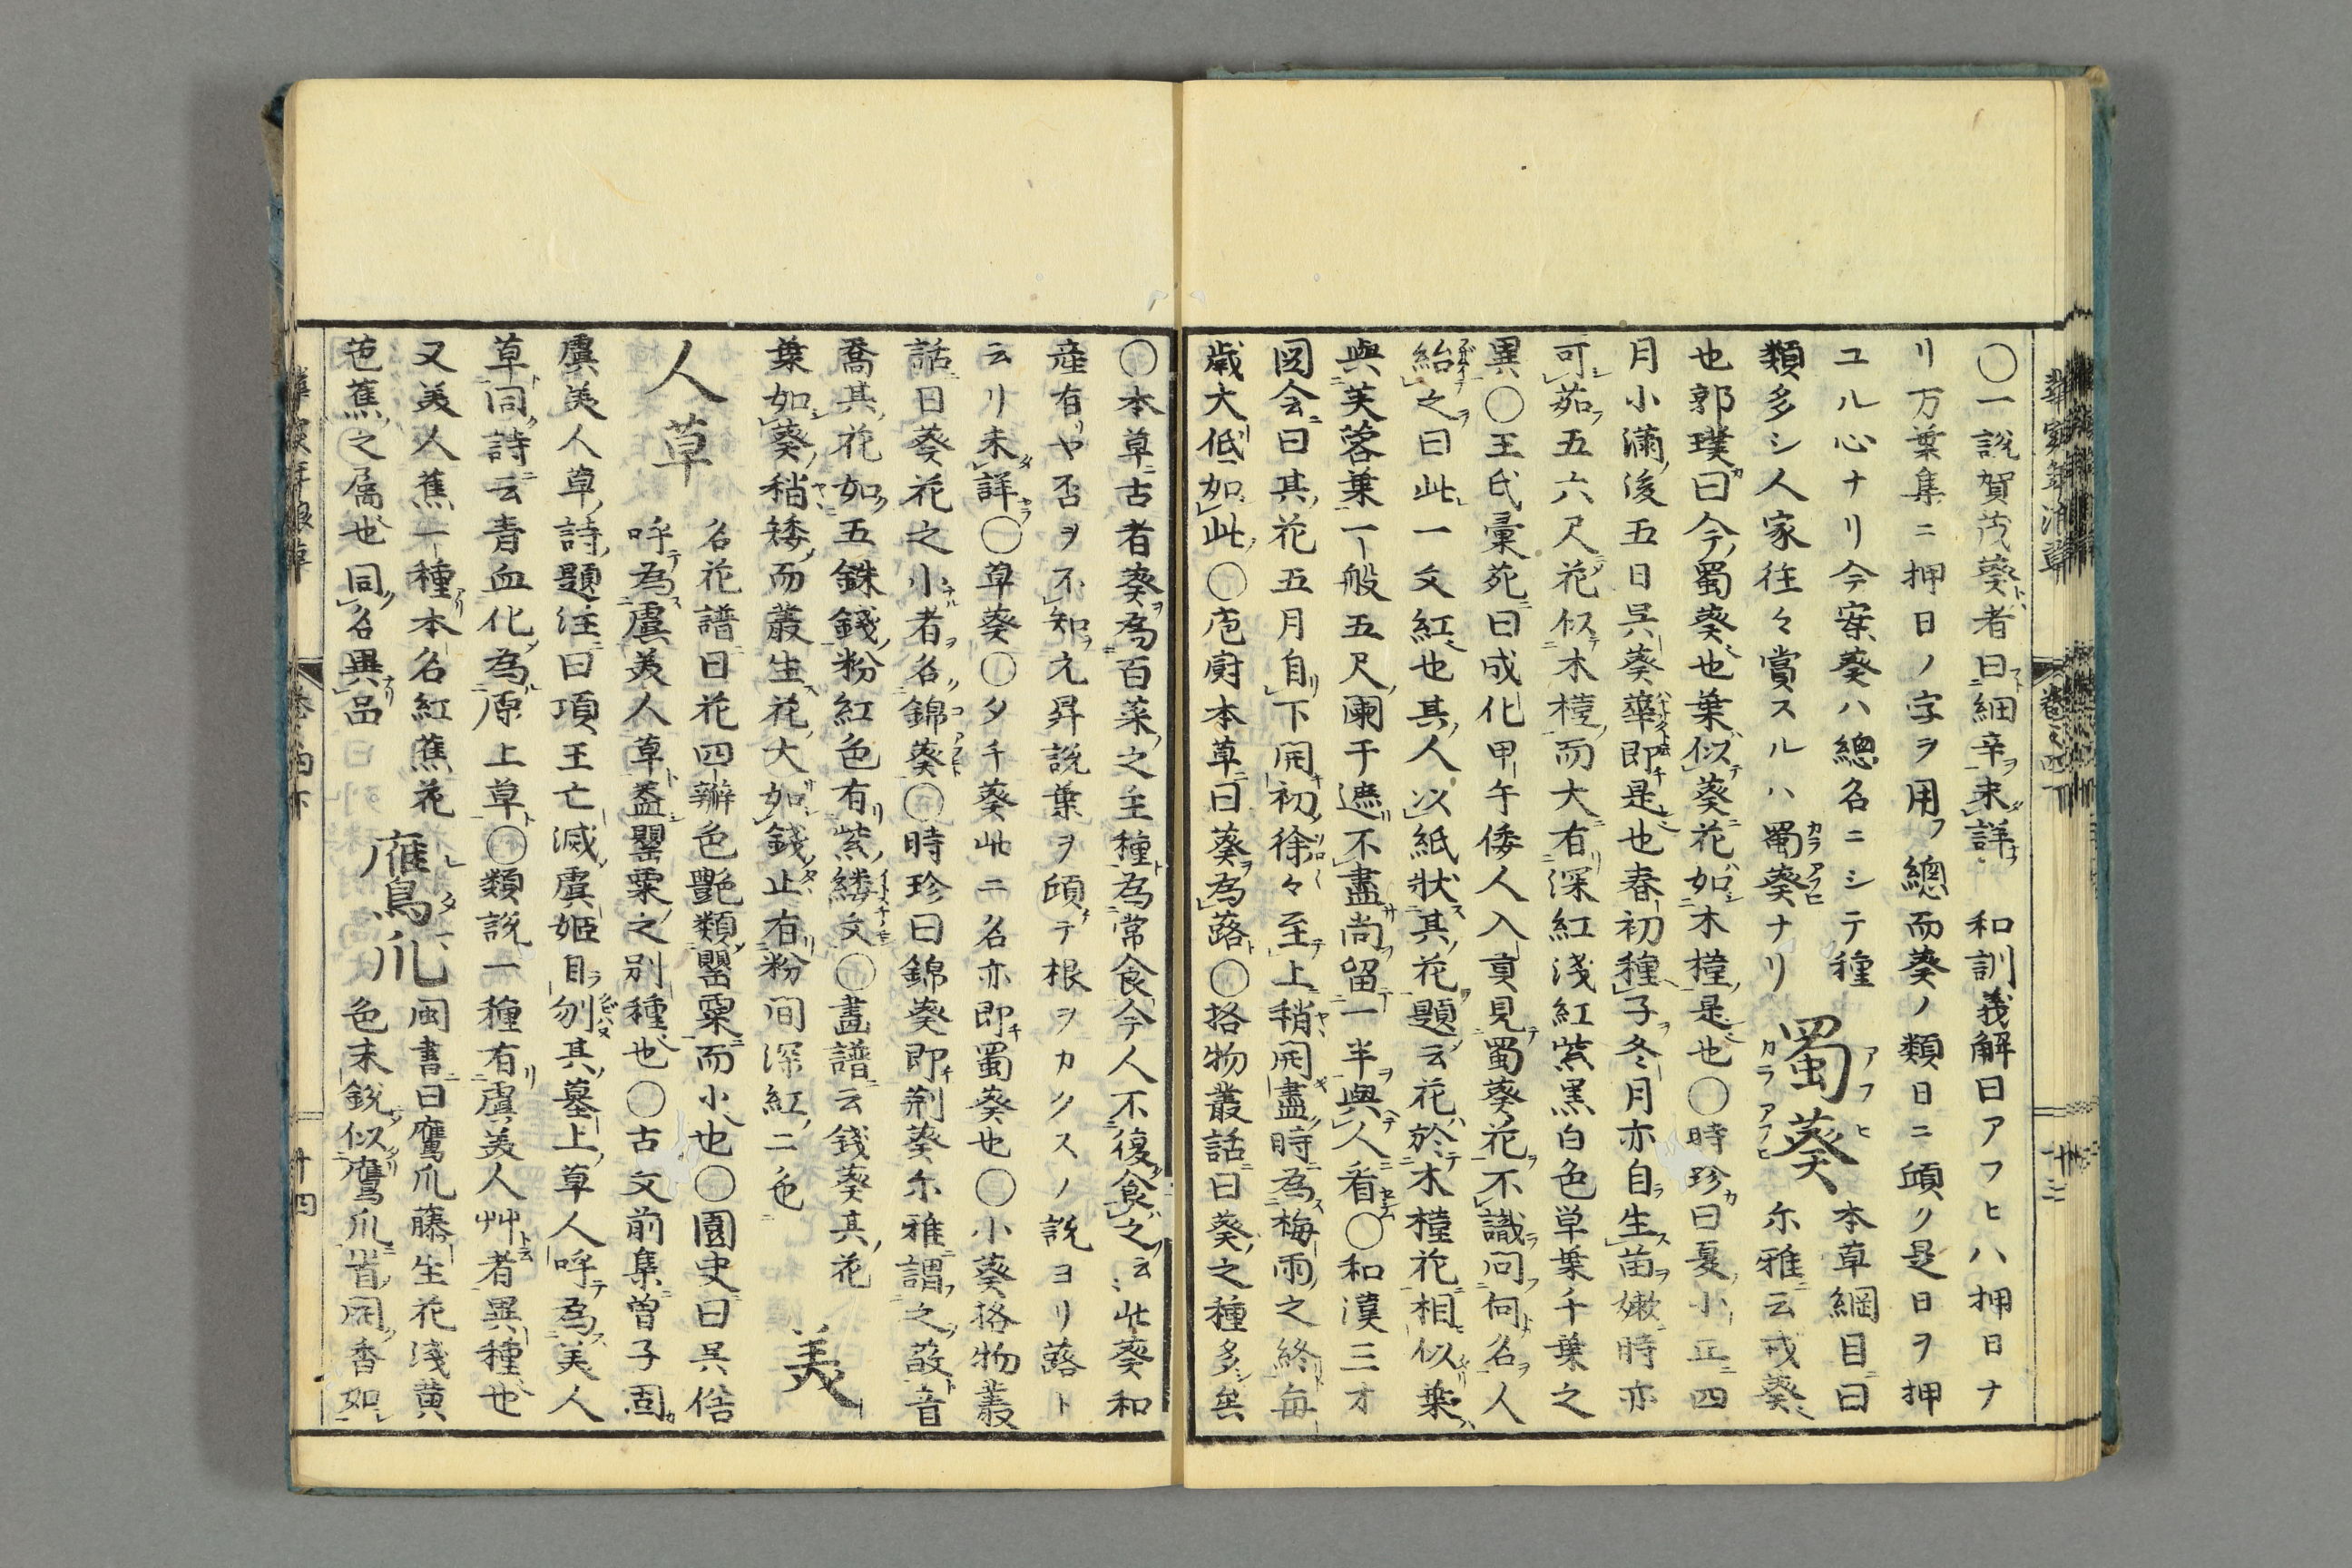 〇一説賀茂葵者曰細辛未詳 和訓義解曰アフヒハ押日ナ
リ万葉集ニ押日ノ字ヲ用フ總而葵ノ類日ニ頃ク是日ヲ押
ユル心ナリ今案葵ハ總名ニシテ種
類多シ人家徃々賞スルハ蜀葵ナリ
蜀葵
本草綱目曰
尓雅云戎葵
也郭璞曰今蜀葵也葉似葵花如木槿是也〇時珍曰夏小正四
月小滿後五日呉葵華即是也春初種子冬月亦自生苗嫩時亦
可茹五六尺花似木槿而大有深紅淺紅紫黒白色単葉千葉之
異〇王氏彙苑曰成化甲午倭人入貢見蜀葵花不識問何名人
紿之曰此一丈紅也其人以紙狀其花題云花於木槿花相似葉
與芙蓉葉一般五尺闌干遮不盡尚留一半與人看〇和漢三才
図会曰其花五月自下開初徐々至上稍開盡時為梅雨之終毎
歳大低如此〇庖厨本草曰葵為蕗〇格物叢話曰葵之種多矣
〇本草古者葵為百菜之主種為常食今人不復食之云此葵和
産有ヤ否ヲ不知元昇説葉ヲ頃テ根ヲカクスノ説ヨリ蕗ト
云リ未詳〇草葵〇夕千葵此ニ名亦即蜀葵也〇小葵格物叢
話曰葵花之小者名錦葵〇時珍曰錦葵即荊葵尓雅謂之荍音
喬其花如五銖錢粉紅色有紫縷文〇畫譜云錢葵其花
葉如葵稍矮而叢生花大如錢止有粉間深紅二色
美人草
名花譜曰花四辦色艶類罌粟而小也〇園史曰呉俗
呼為虞美人草盖罌粟之别種也〇古文前集曽子固
虞美人草詩題注曰項王亡滅虞姫自刎其墓上草人呼為美人
草同詩云青血化為原上草〇類説一種有虞美人艸者異種也
又美人蕉一種本名紅蕉花
芭蕉之属也同名異品
鴈爪
閩書曰鷹爪藤生花淺黄
色末鋭似鷹爪開香如